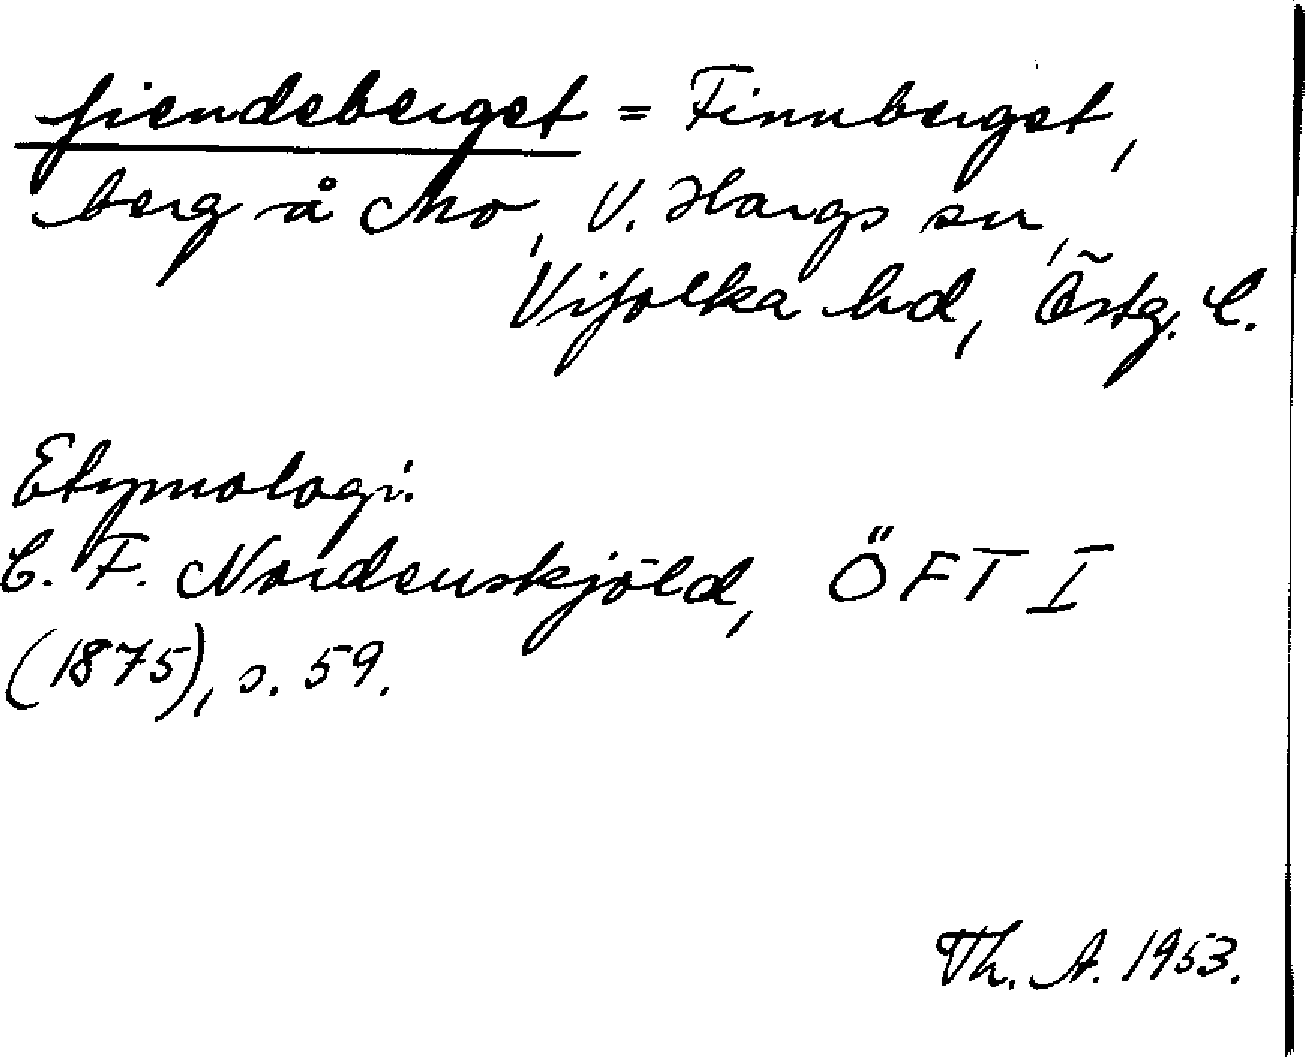 fiendeberget = Finnberget,
berg å Mo, V. Hargs sn,
Vifolka hd, Östg. l.
Etymologi.
C. F. Nordenskjöld, ÖFT I
(1875), s. 59.
Th. A. 1953.